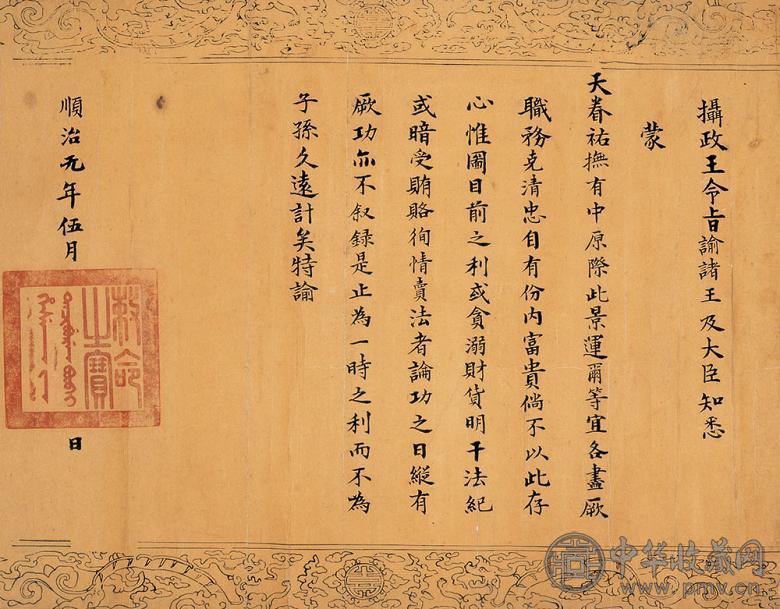 攝政王令旨諭諸王及大臣知悉
蒙
天眷祐撫有中原際此景運爾等宜各盡厥
職務克清忠自有份内富貴倘不以此存
心惟圖目前之利或貪溺財貨明干法紀
或暗受賄賂徇情賣法者論功之日縱有
厥功亦不叙録是止為一時之利而不為
子孫久遠計矣特諭
順治元年伍月 日
敕命
之寶
中华收藏网
www.pmv.cn